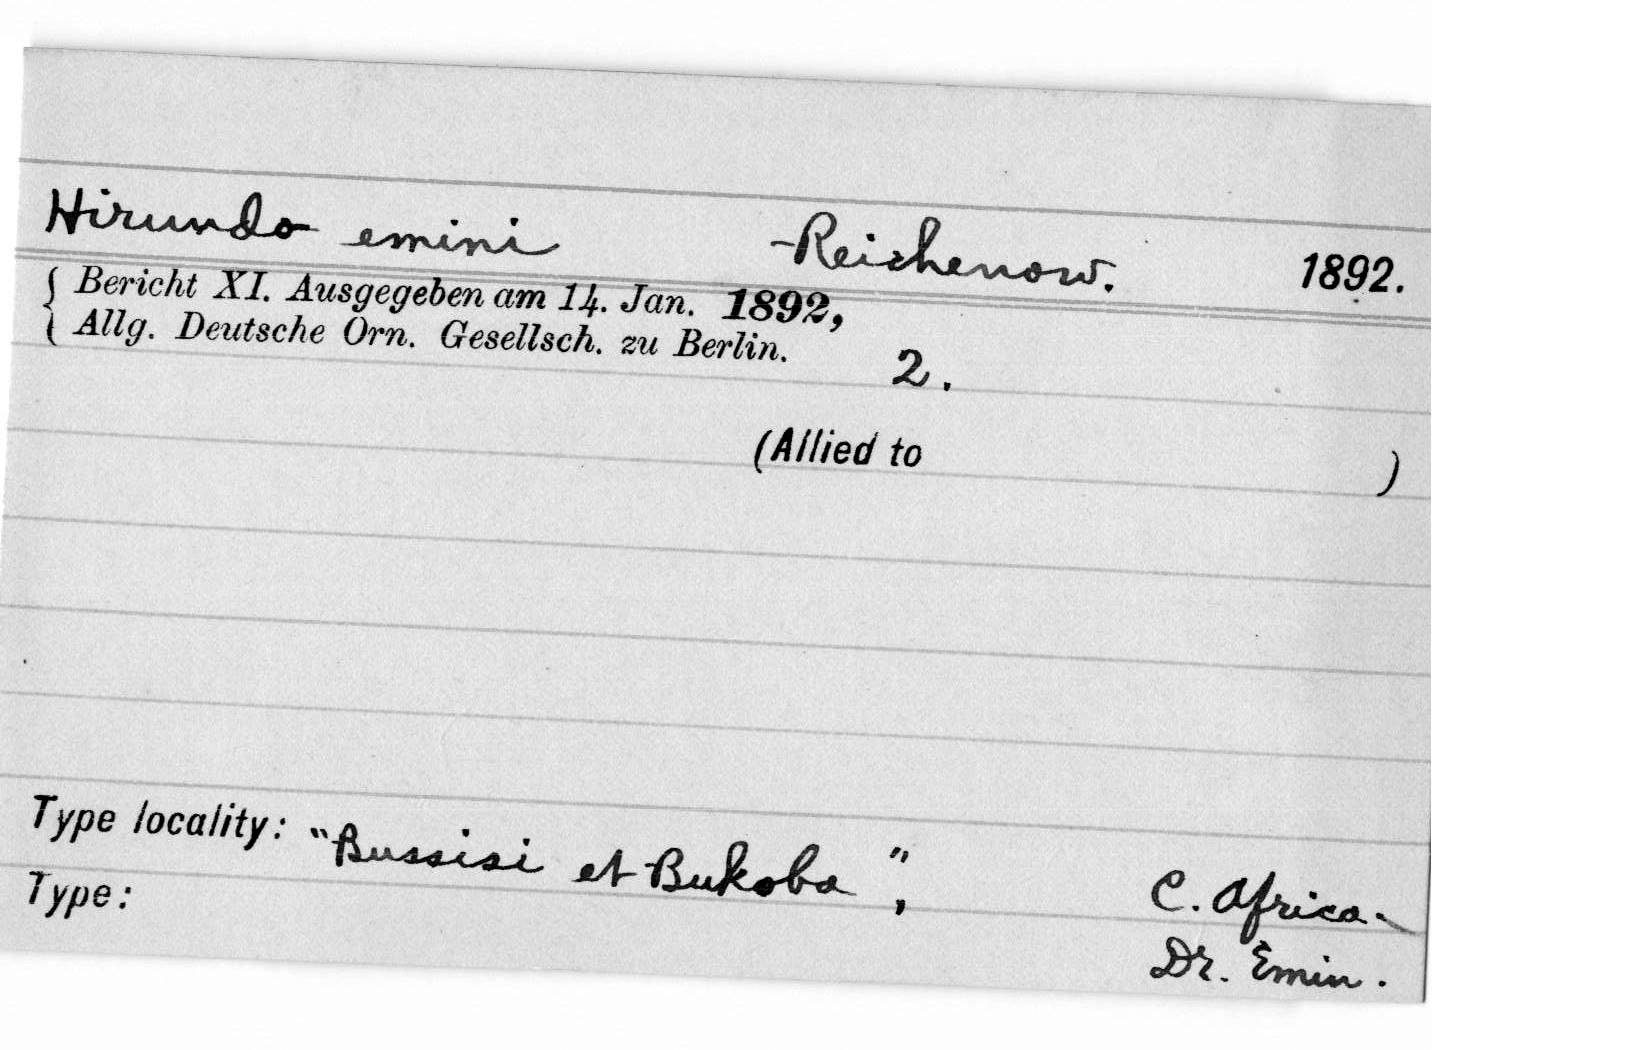 Hirundo emini Reichenow. 1892.
{ Bericht XI. Ausgegeben am 14. Jan. 1892,
{ Allg. Deutsche Orn. Gesellsch. zu Berlin. 2.
(Allied to )
Type locality: "Bussisi et Bukoba", C. Africa.
Type: Dr. Emin.